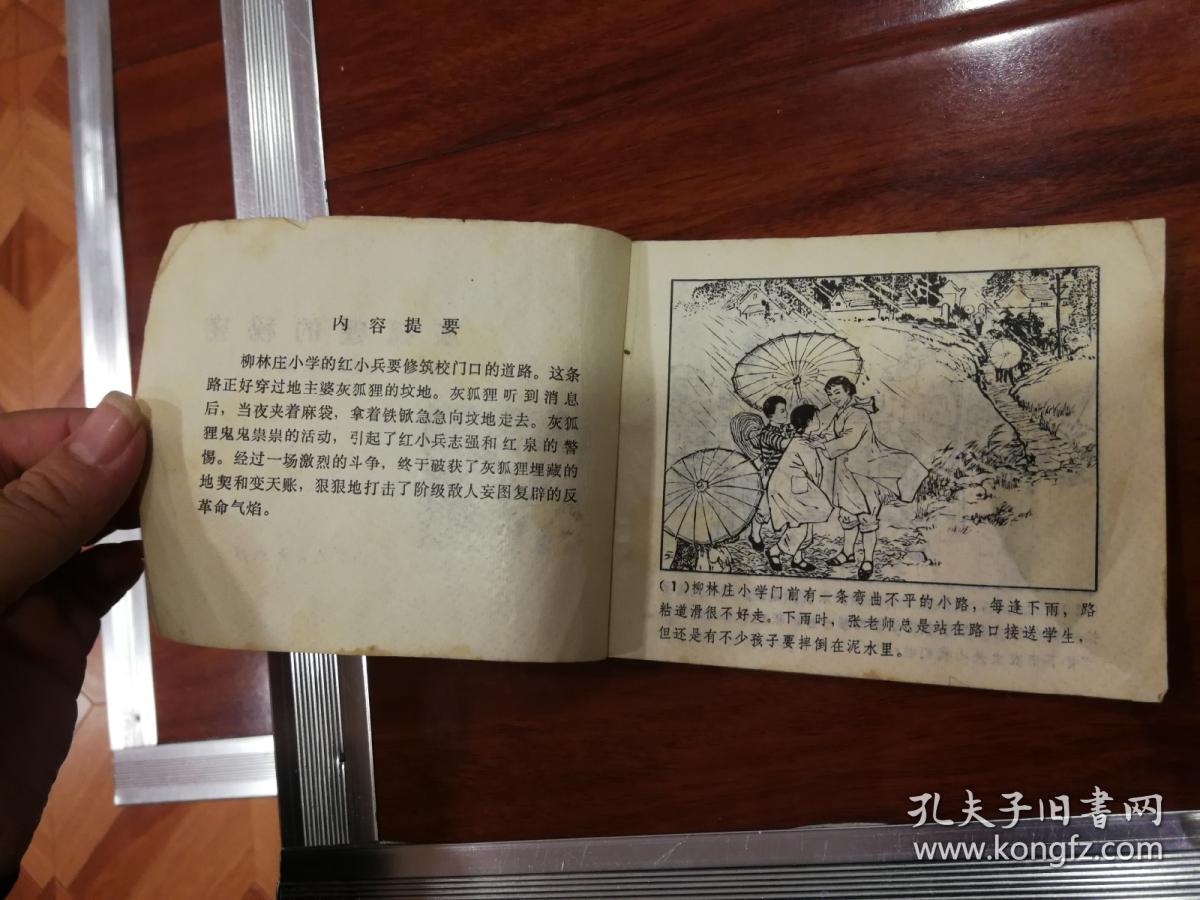 内容提要
柳林庄小学的红小兵要修筑校门口的道路。这条
路正好穿过地主婆灰狐狸的坟地。灰狐狸听到消息
后，当夜夹着麻袋，拿着铁锨急急向坟地走去。灰狐
狸鬼鬼祟祟的活动，引起了红小兵志强和红泉的警
惕。经过一场激烈的斗争，终于破获了灰狐狸埋藏的
地契和变天账，狠狠地打击了阶级敌人妄图复辟的反
革命气焰。
(1)柳林庄小学门前有一条弯曲不平的小路，每逢下雨，路
粘道滑很不好走。下雨时，张老师总是站在路口接送学生，
但还是有不少孩子要摔倒在泥水里。
孔夫子旧书网
www.kongfz.com